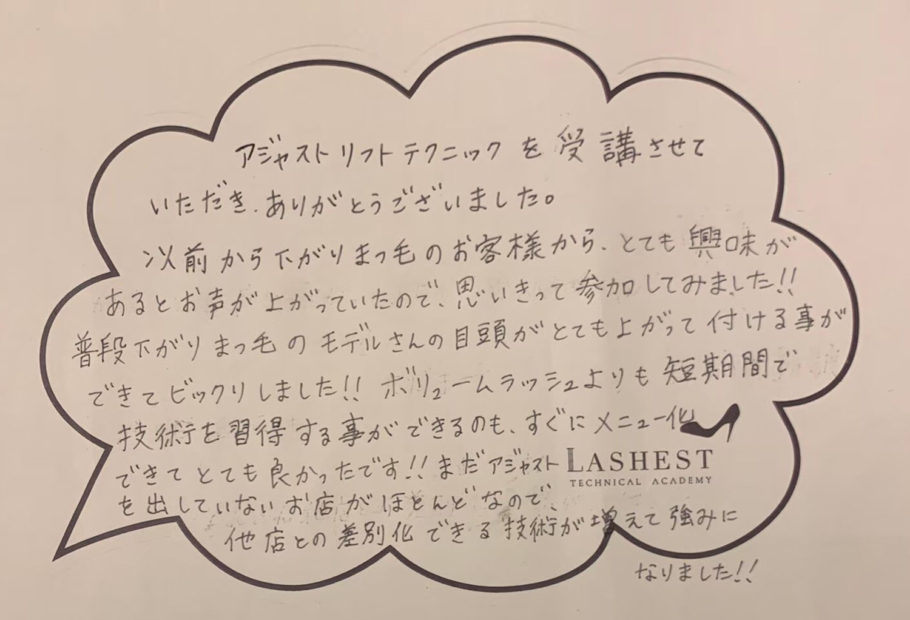 アジャストリフトテクニックを受講させて
いただき、ありがとうございました。
以前から下がりまつ毛のお客様から、とても興味が
あるとお声が上がっていたので、思いきって参加してみました!!
普段下がりまつ毛のモデルさんの目頭がとても上がって付ける事が
できてビックリしました!! ボリュームラッシュよりも短期間で
技術を習得する事ができるのも、すぐにメニュー化
できてとても良かったです!! まだアジャスト
LASHEST
TECHNICAL ACADEMY
を出していないお店がほとんどなので、
他店との差別化できる技術が増えて強みに
なりました!!